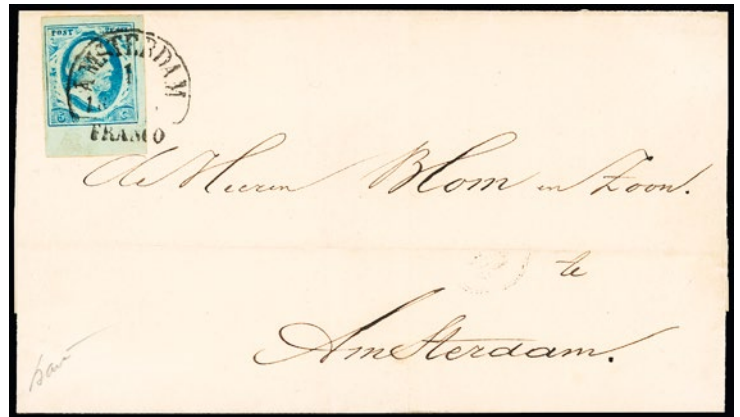 POST
AMSTERDAM
1
5 C
FRANCO
de Heeren Blom en Zoon.
te
Amsterdam.